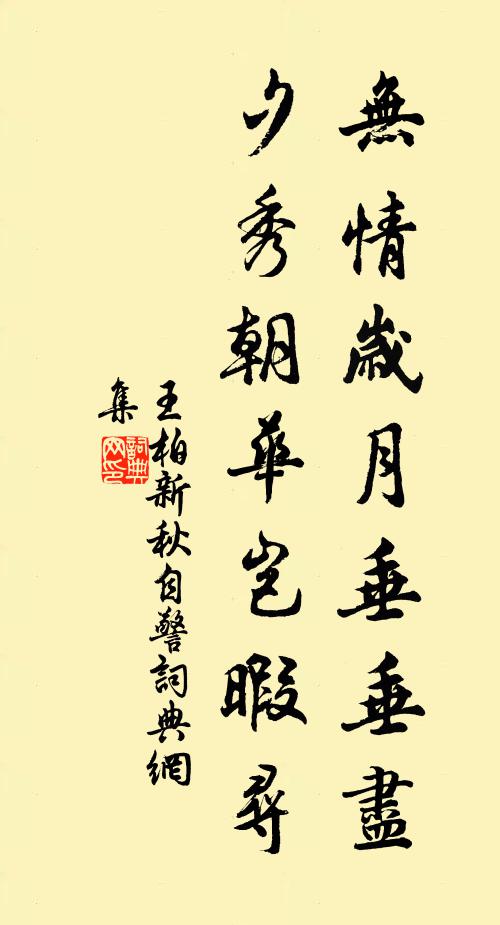 無情歲月垂垂盡
夕秀朝華豈暇尋
王柏新秋自警詞典網
集
詞典
网印